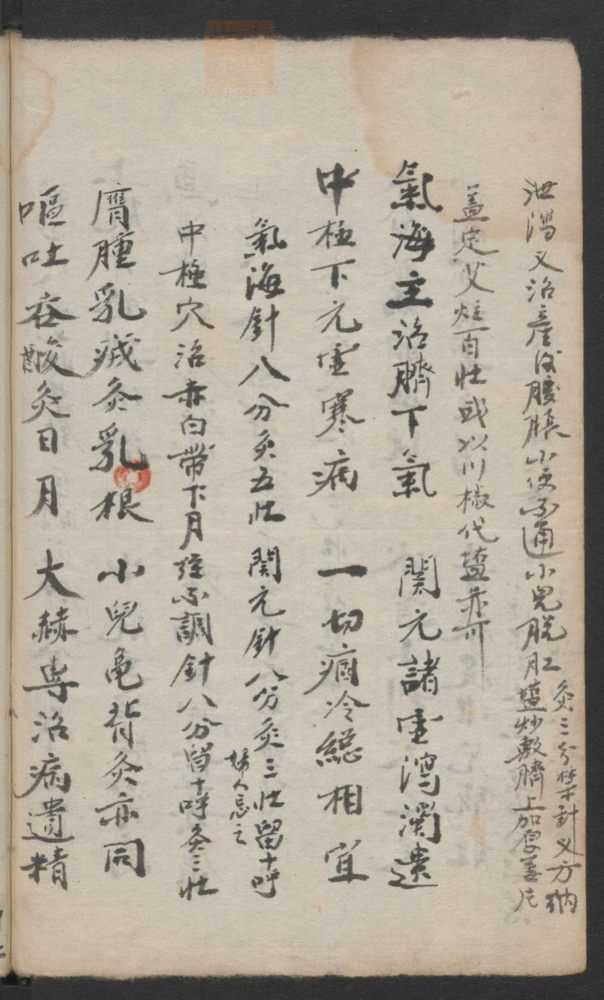 泄瀉又治產後腹脹小便不通小兒脫肛
灸三分禁針又方納
塩炒敷臍上加厚姜片
盖定艾炷百壯或以川椒代塩亦可
氣海主治臍下氣 関元諸虛瀉濁遺
中極下元虛寒病 一切痼冷縂相宜
氣海針八分灸五壯 関元針八分灸三壯留十呼
婦人忌之
中極穴治赤白帶下月經不調針八分留十呼灸三壯
膺腫乳㾕灸乳根 小兒龜背灸亦同
嘔吐吞酸灸日月 大赫專治病遺精